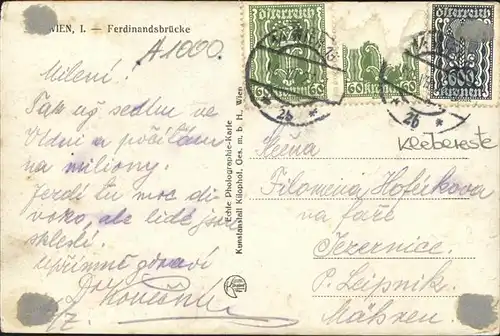 WIEN, I. — Ferdinandsbrücke
A1000.
Milení!
Tak už sedím ve
Vídni a počítám
na miliony.
Jezdí tu moc di-
voko, ale lidé jsou
skleslí.
Upřímně zdraví
Echte Photographie-Karte
Kunstanstalt Kilophot, Ges. m. b. H., Wien
österreich
60 Kronen 60
60 Kronen 60
österreich
Kronen
26
26
Klebereste
Slečna
Filomena Hofírkova
na faře
Jezernice.
p. Leipnik.
Mähren.